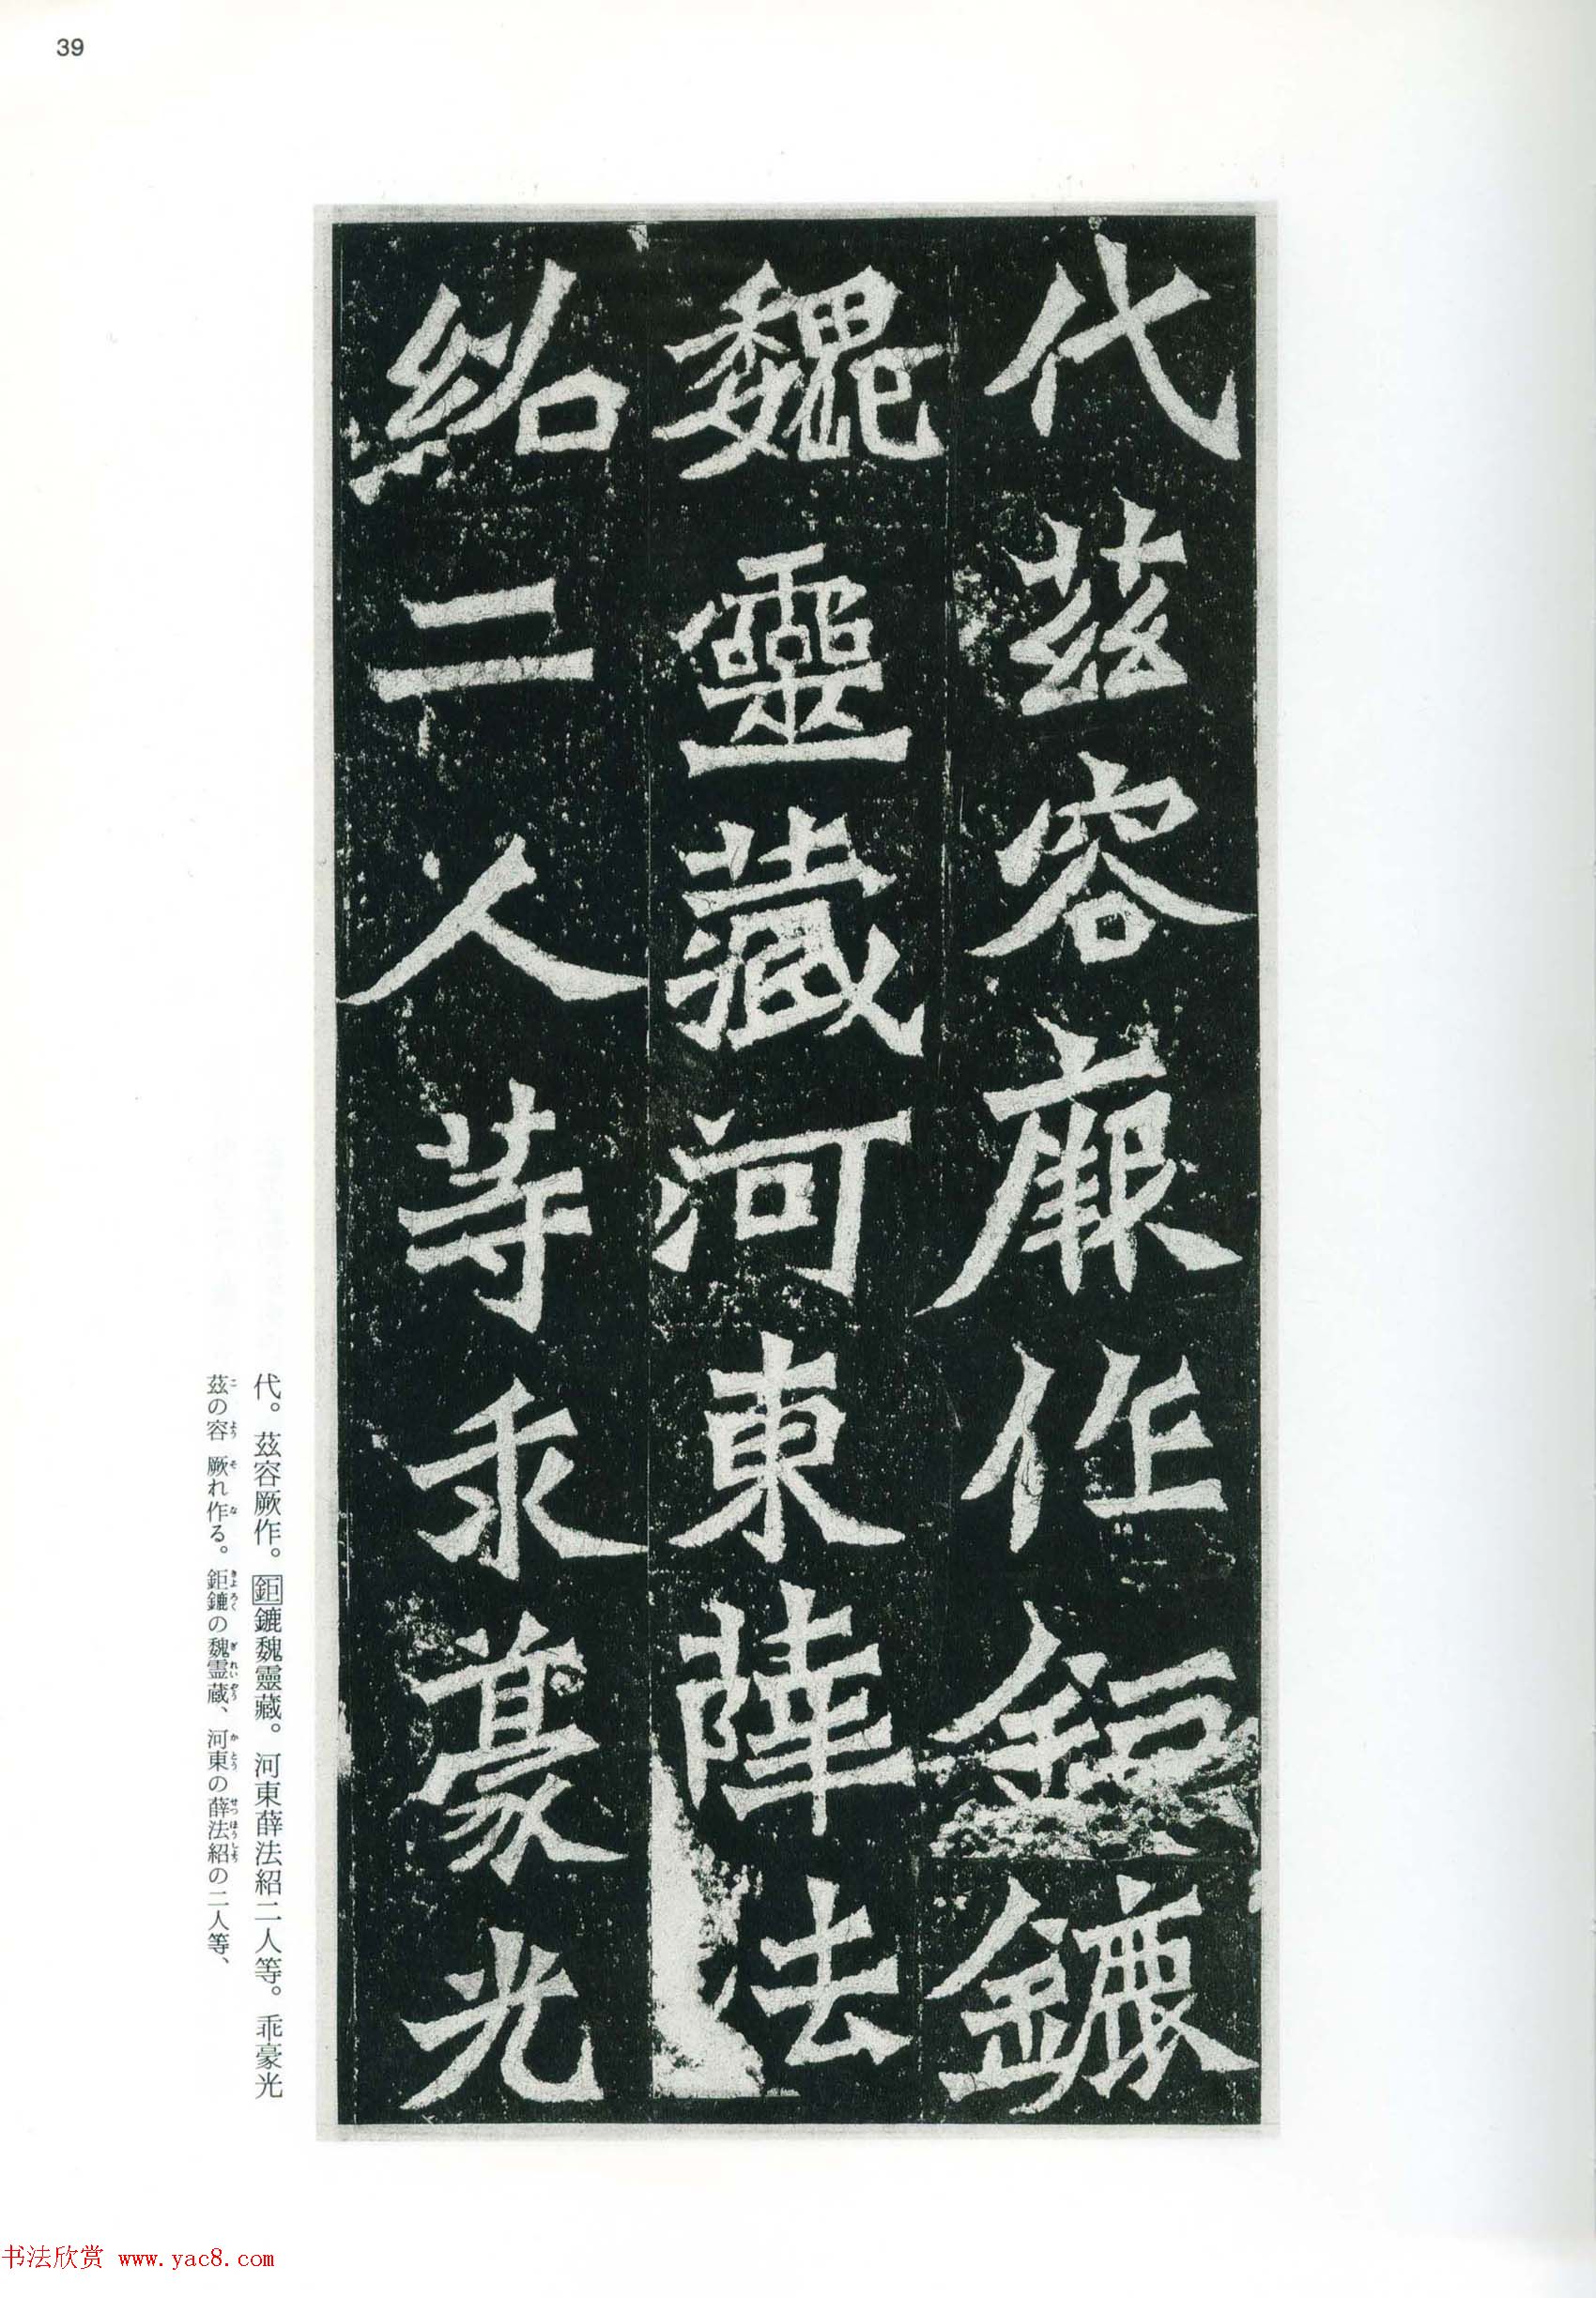 39
代茲容厥作鉅鏕
魏靈藏河東薛法
紹二人等乘豪光
代。茲容厥作。鉅鏕魏靈藏。河東薛法紹二人等。乖豪光
茲の容 厥れ作る。鉅鏕の魏霊蔵、河東の薛法紹の二人等、
书法欣赏 www.yac8.com